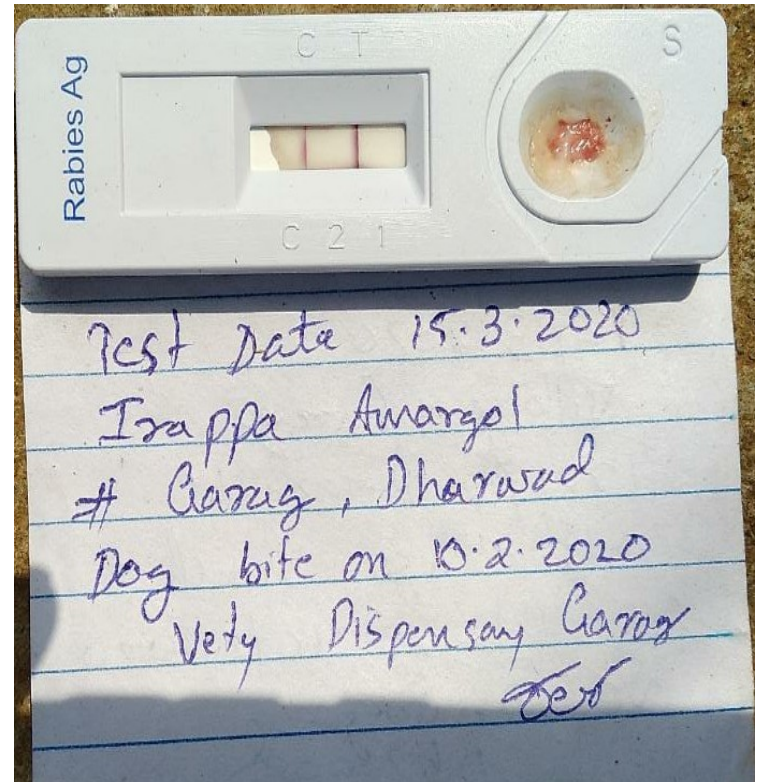 Rabies Ag
C T
S
C 2 1
Test Date 15.3.2020
Irappa Amargol
# Garag, Dharwad
Dog bite on 10.2.2020
Vety Dispensay Garag